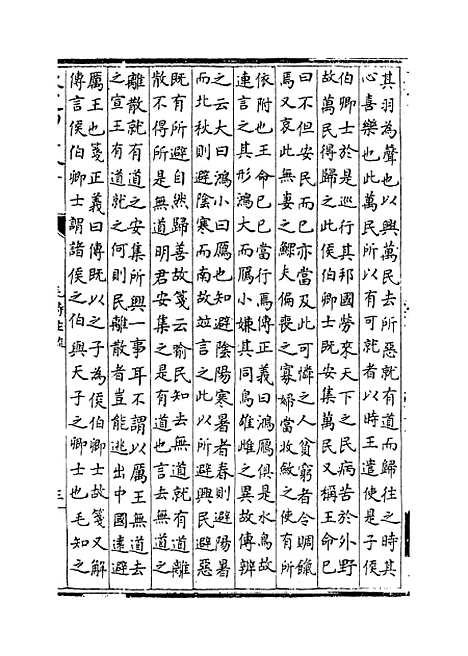 其羽為聲也以興萬民去所惡就有道而歸往之時其
心喜樂也此萬民所以有可就者以時王遣使是子侯
伯卿士於是巡行其邦國勞來天下之民病苦於外野
故萬民得歸之此侯伯卿士既安集萬民又稱王命已
曰不但安民而已亦當及此可憐之人貧窮者令賙餼
焉又哀此無妻之鰥夫偏喪之寡婦當收斂之使有所
依附也王命已已當行焉傳正義曰鴻鴈俱是水鳥故
連言之其形鴻大而鴈小嫌其同鳥雄雌之異故傳辨
之云大曰鴻小曰鴈也知避陰陽寒暑者春則避陽暑
而北秋則避陰寒而南故竝言之此以所避興民避惡
既有所避自然歸善故箋云喻民知去無道就有道離
散不得所是無道明君安集之是有道也言去無道
離散就有道之安集所興一事耳不謂以厲王無道去
之宣王有道就之何則民離散者豈能逃出中國遠避
厲王也箋正義曰傳既以之子為侯伯卿士故箋又解
傳言侯伯卿士謂諸侯之伯與天子之卿士也毛知之
毛詩注疏
三